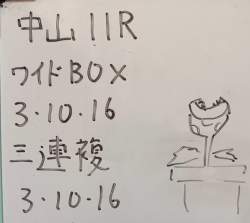 中山11R
ワイドBOX
3・10・16
三連複
3・10・16